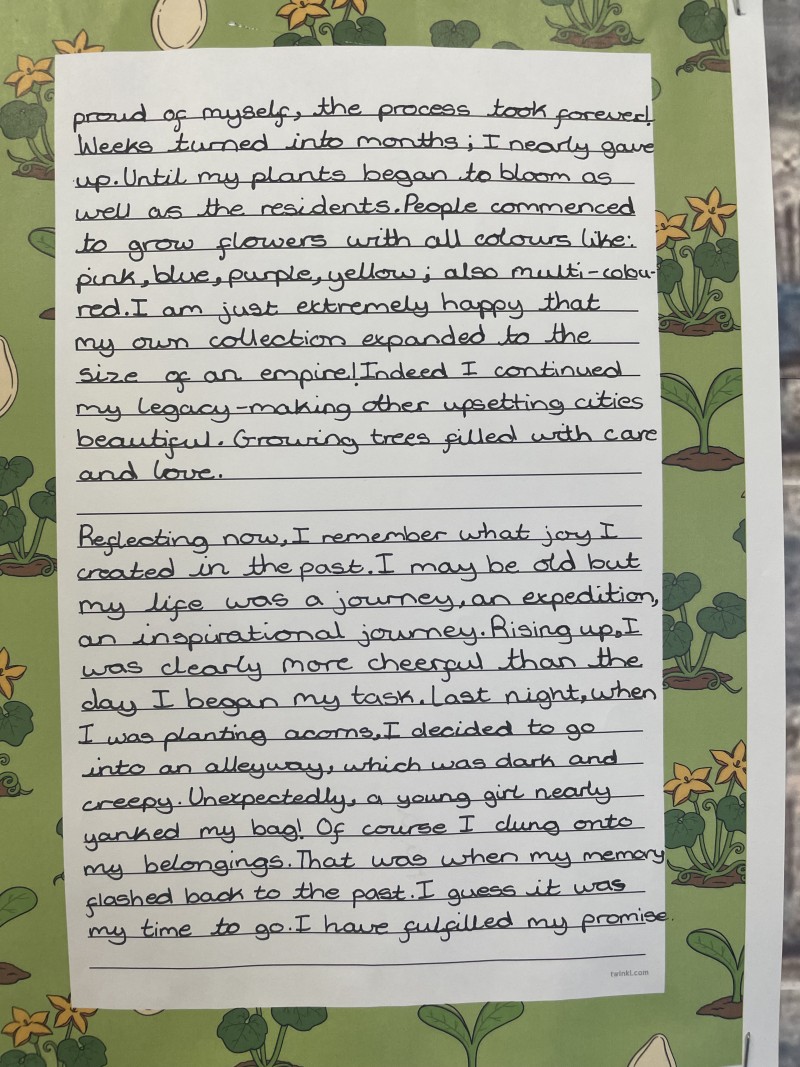 proud of myself, the process took forever!
Weeks turned into months; I nearly gave
up. Until my plants began to bloom as
well as the residents. People commenced
to grow flowers with all colours like:
pink, blue, purple, yellow; also multi-colou-
red. I am just extremely happy that
my own collection expanded to the
size of an empire! Indeed I continued
my legacy-making other upsetting cities
beautiful. Growing trees filled with care
and love.
Reflecting now, I remember what joy I
created in the past. I may be old but
my life was a journey, an expedition,
an inspirational journey. Rising up, I
was clearly more cheerful than the
day I began my task. Last night, when
I was planting acorns, I decided to go
into an alleyway, which was dark and
creepy. Unexpectedly, a young girl nearly
yanked my bag! Of course I clung onto
my belongings. That was when my memory
flashed back to the past. I guess it was
my time to go. I have fulfilled my promise.
twinkl.com